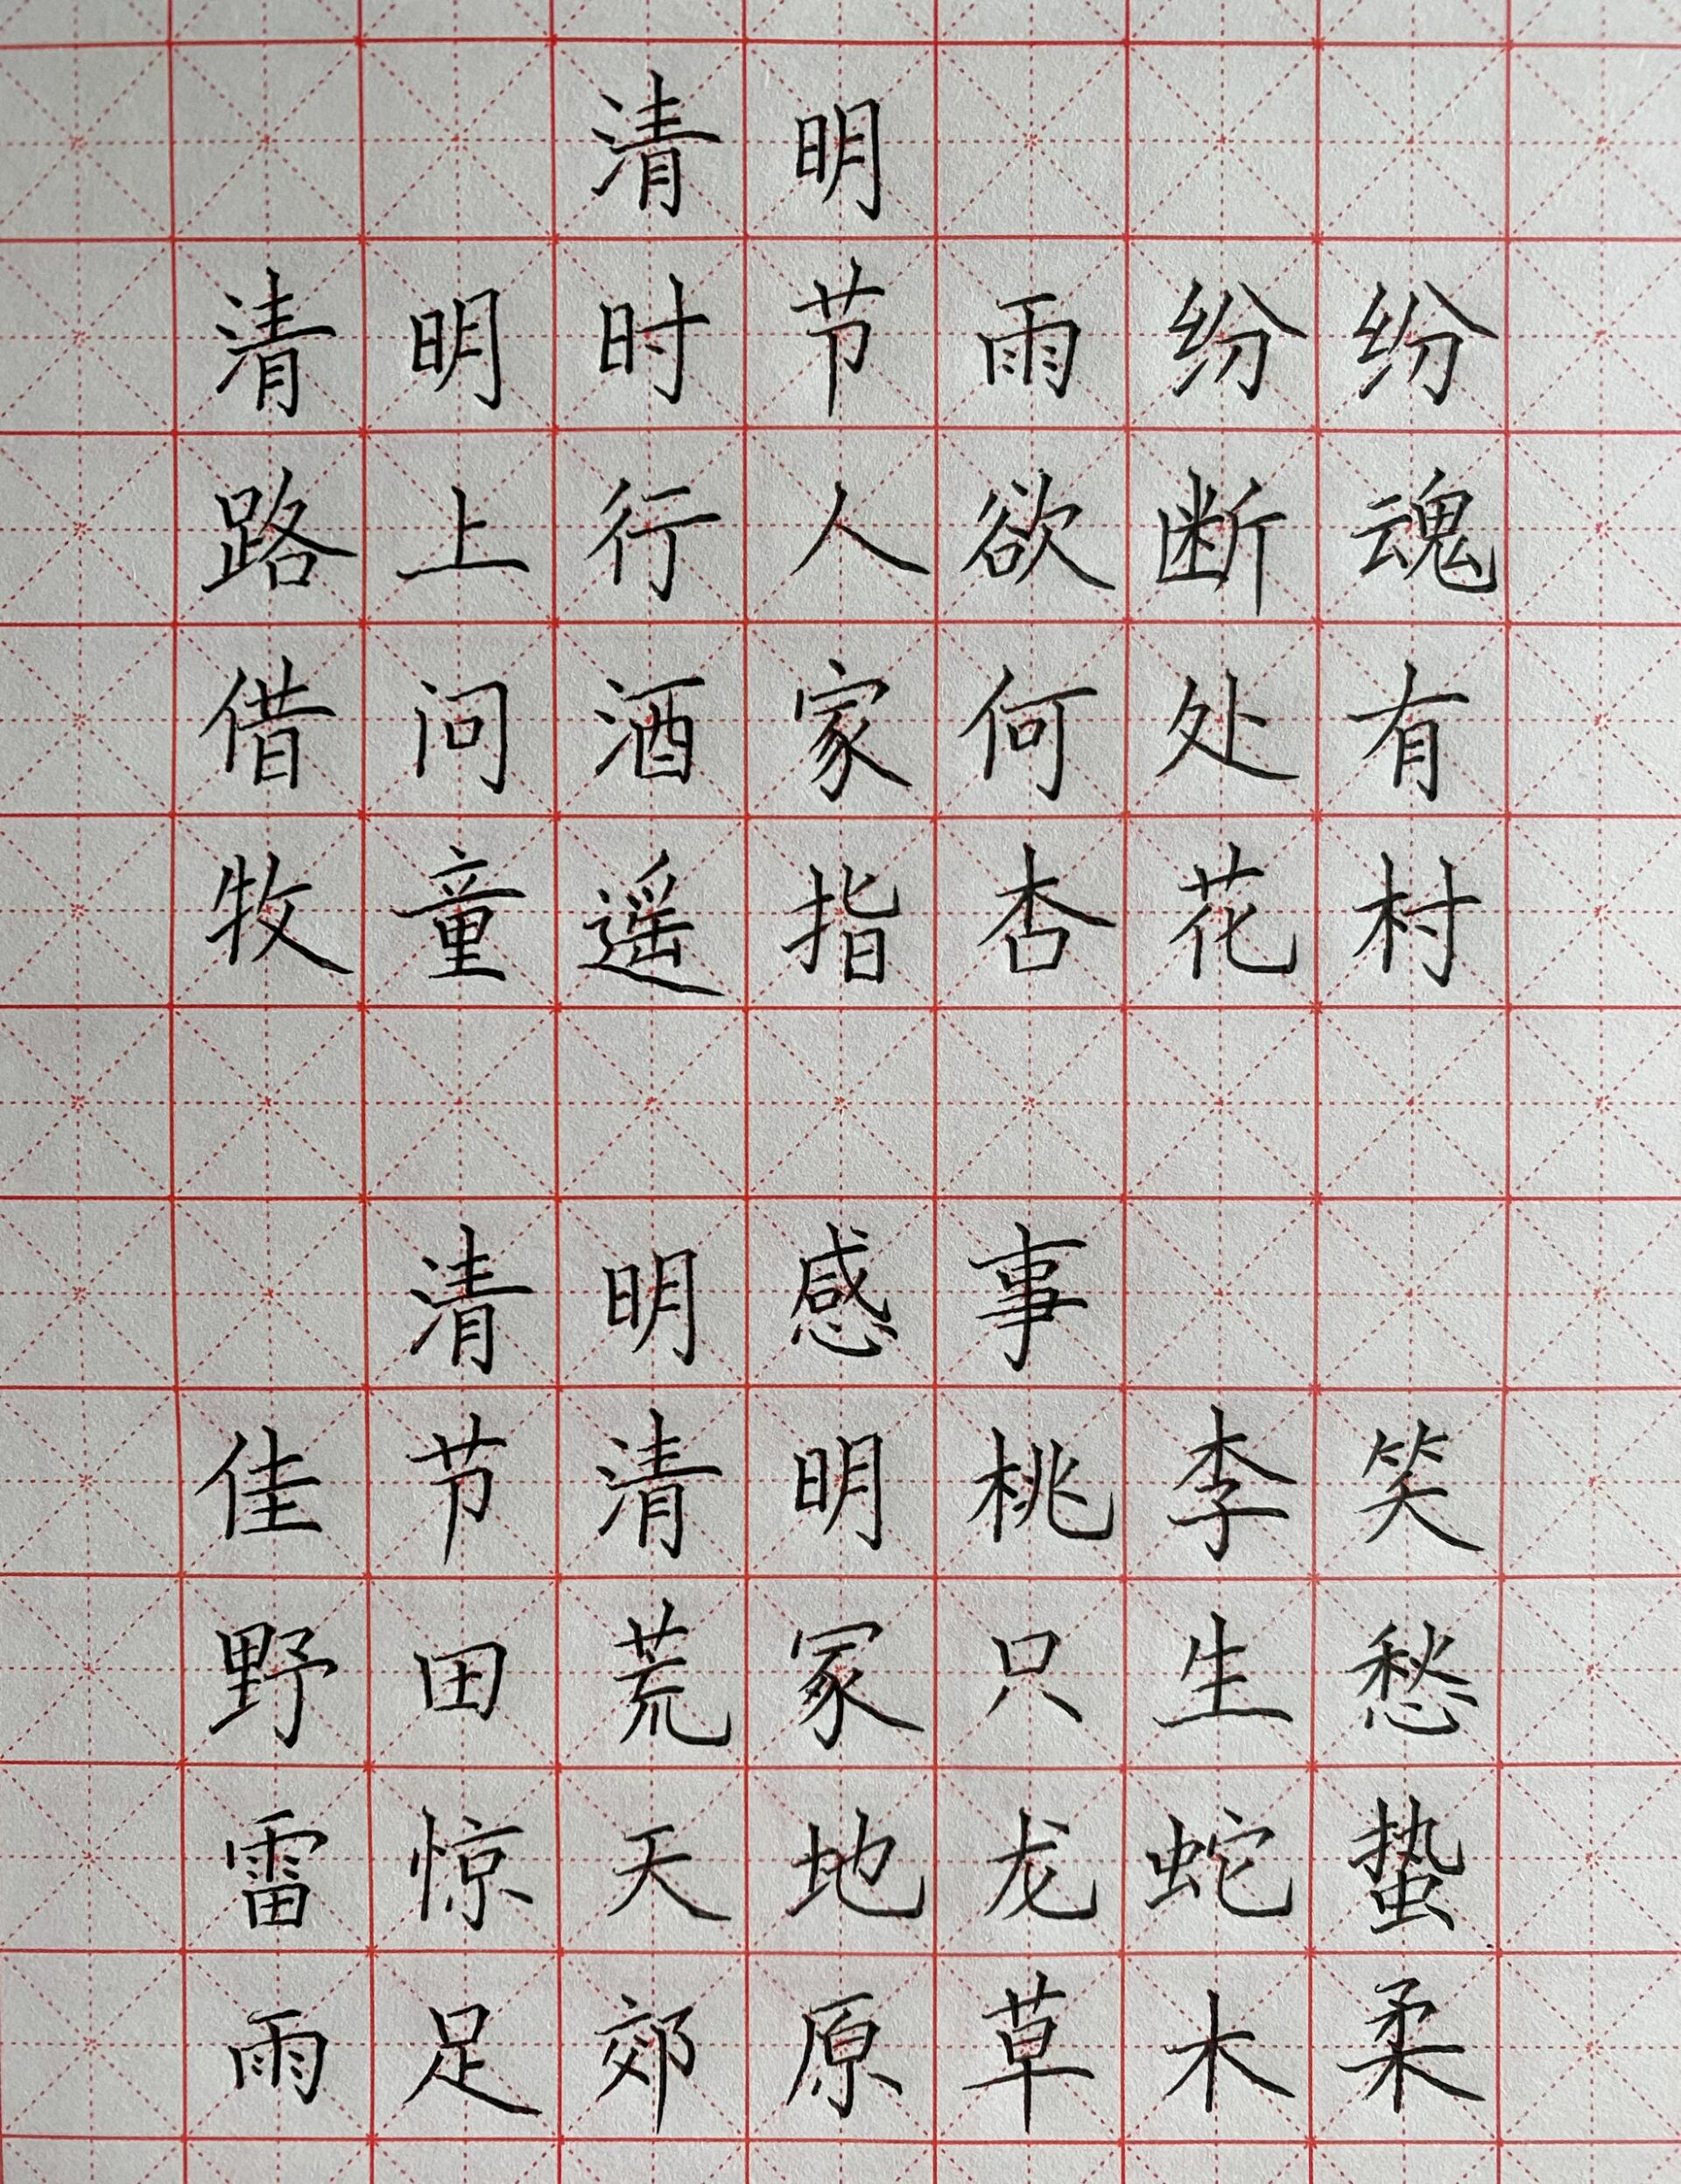 清明
清明时节雨纷纷
路上行人欲断魂
借问酒家何处有
牧童遥指杏花村
清明感事
佳节清明桃李笑
野田荒冢只生愁
雷惊天地龙蛇蛰
雨足郊原草木柔